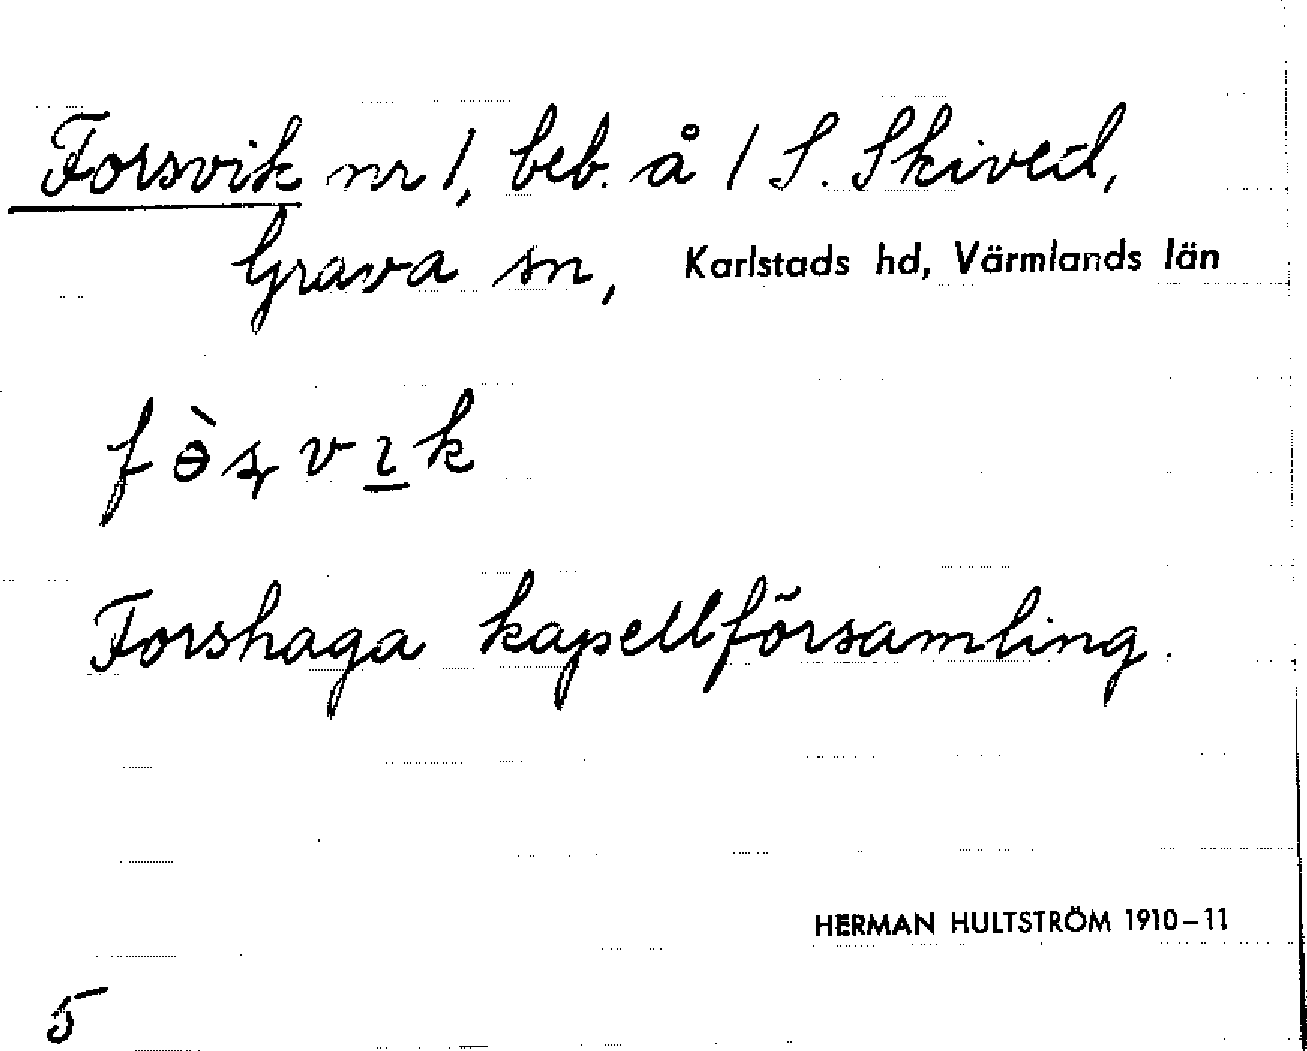 Forsvik nr 1, beb. å 1 S. Skived,
Grava sn, Karlstads hd, Värmlands län
fɵ̀ʂvɩ̲k
Forshaga kapellförsamling.
HERMAN HULTSTRÖM 1910–11
5